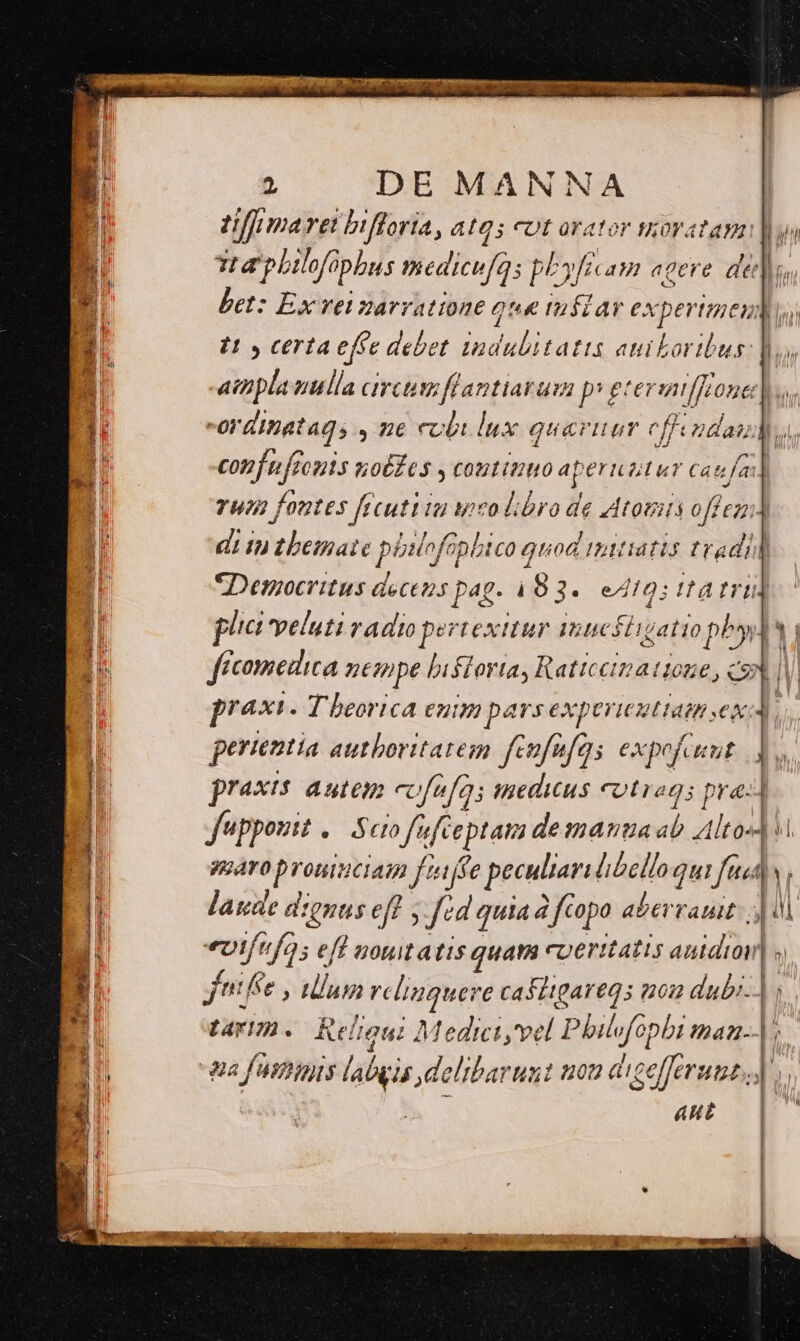 2 DE MANNA
tissima rei historia, atq; vt orator moratam
ita philosophus medicusq; physicam agere de
bet: Ex rei narratione quæ instar experimen
ti, certa esse debet indubitatis autoribus
ampla nulla circumstantiarum prætermissione
ordinataq; , ne vbi lux quæritur offundan
confusionis noctes, continuo aperiuntur causa
rum fontes sicuti in meo libro de Atomis osten
di in themate philosophico quod initiatis tradi
Democritus docens pag. 183. Atq; ita tri
plici veluti radio pertexitur inuestigatio phy
sicomedica nempe historia, Ratiocinatione, &
praxi. Theorica enim pars experientiam, ex
perientia authoritatem sensusq; exposcunt
praxis autem vsusq; medicus vtraq; præ
supponit. Scio susceptam de manna ab Alto
maro prouinciam fuisse peculiari libello qui sua
laude dignus est, sed quia à scopo aberrauit
visusq; est nouitatis quam veritatis auidior
fuisse, illum relinquere castigareq; non dubi-
tarim. Reliqui Medici, vel Philosophi man-
na summis labijs, delibarunt non digesserunt
aut